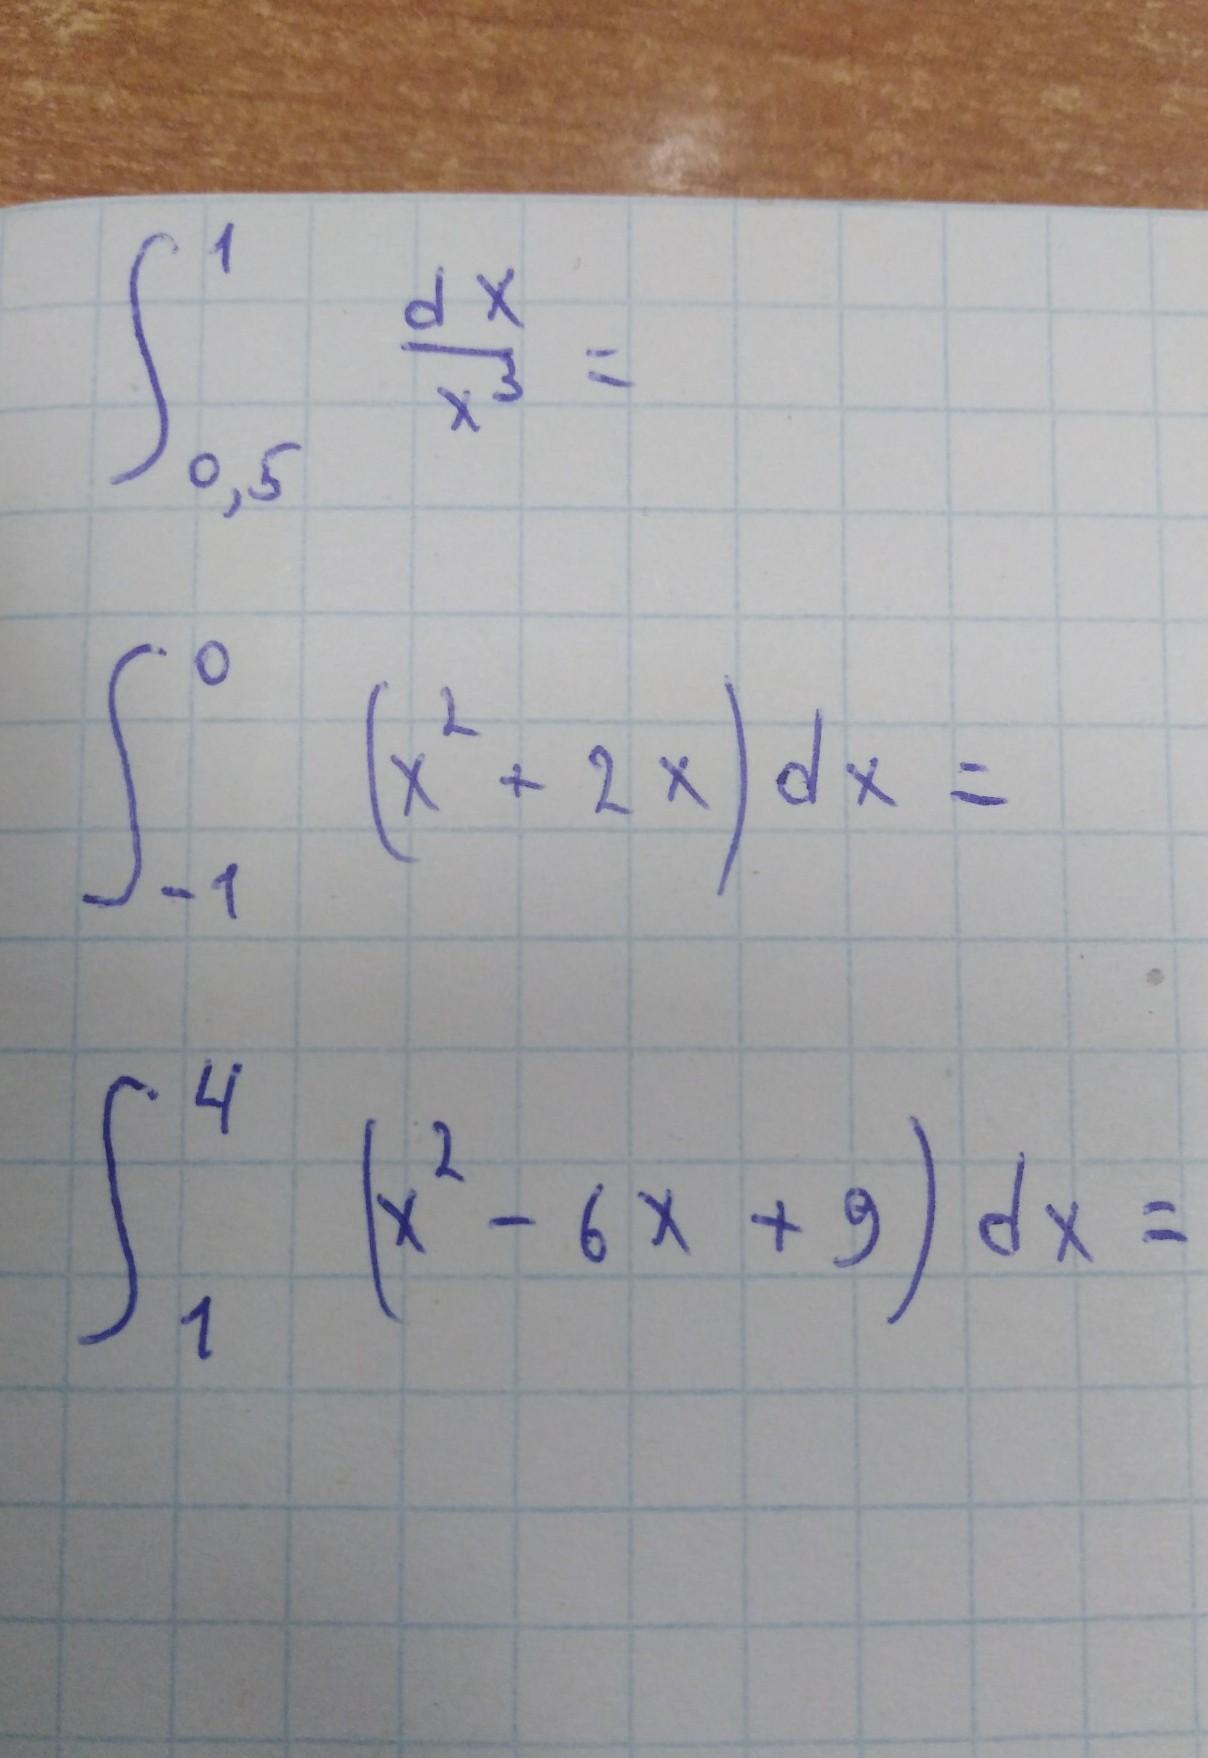 ∫_{0,5}^{1} dx/x³ =
∫_{-1}^{0} (x² + 2x) dx =
∫_{1}^{4} (x² - 6x + 9) dx =